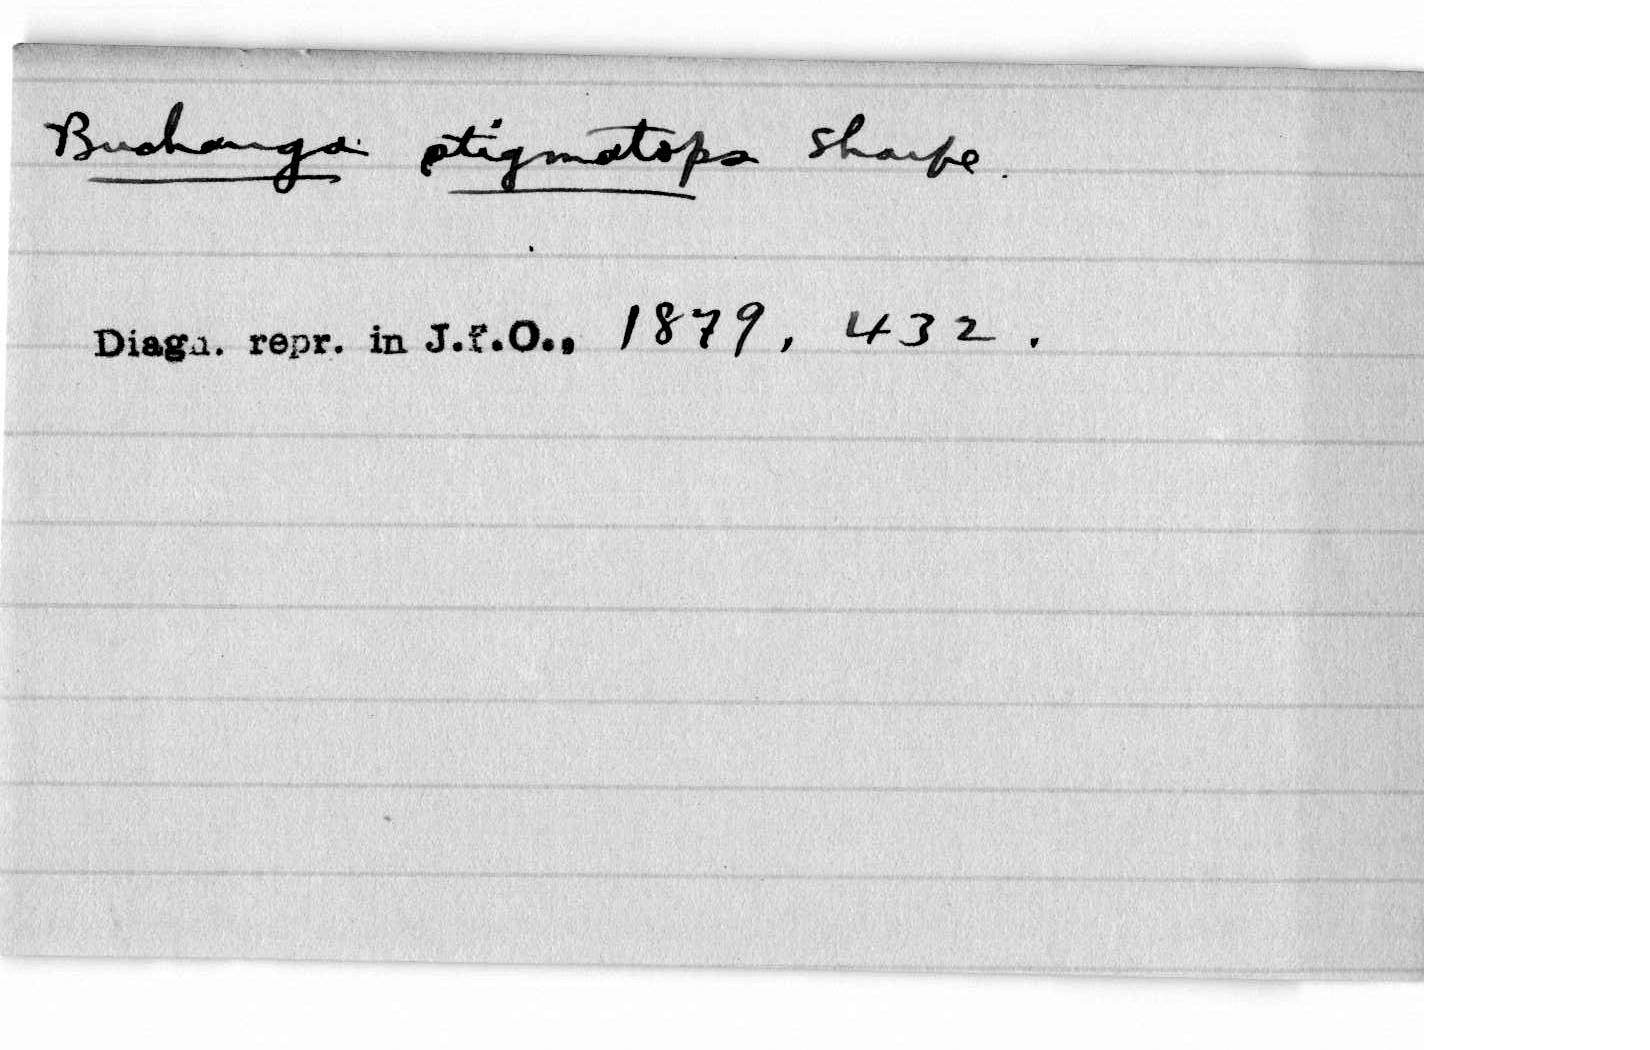 Buchanga stigmatops Sharpe.
Diagn. repr. in J.f.O., 1879, 432.